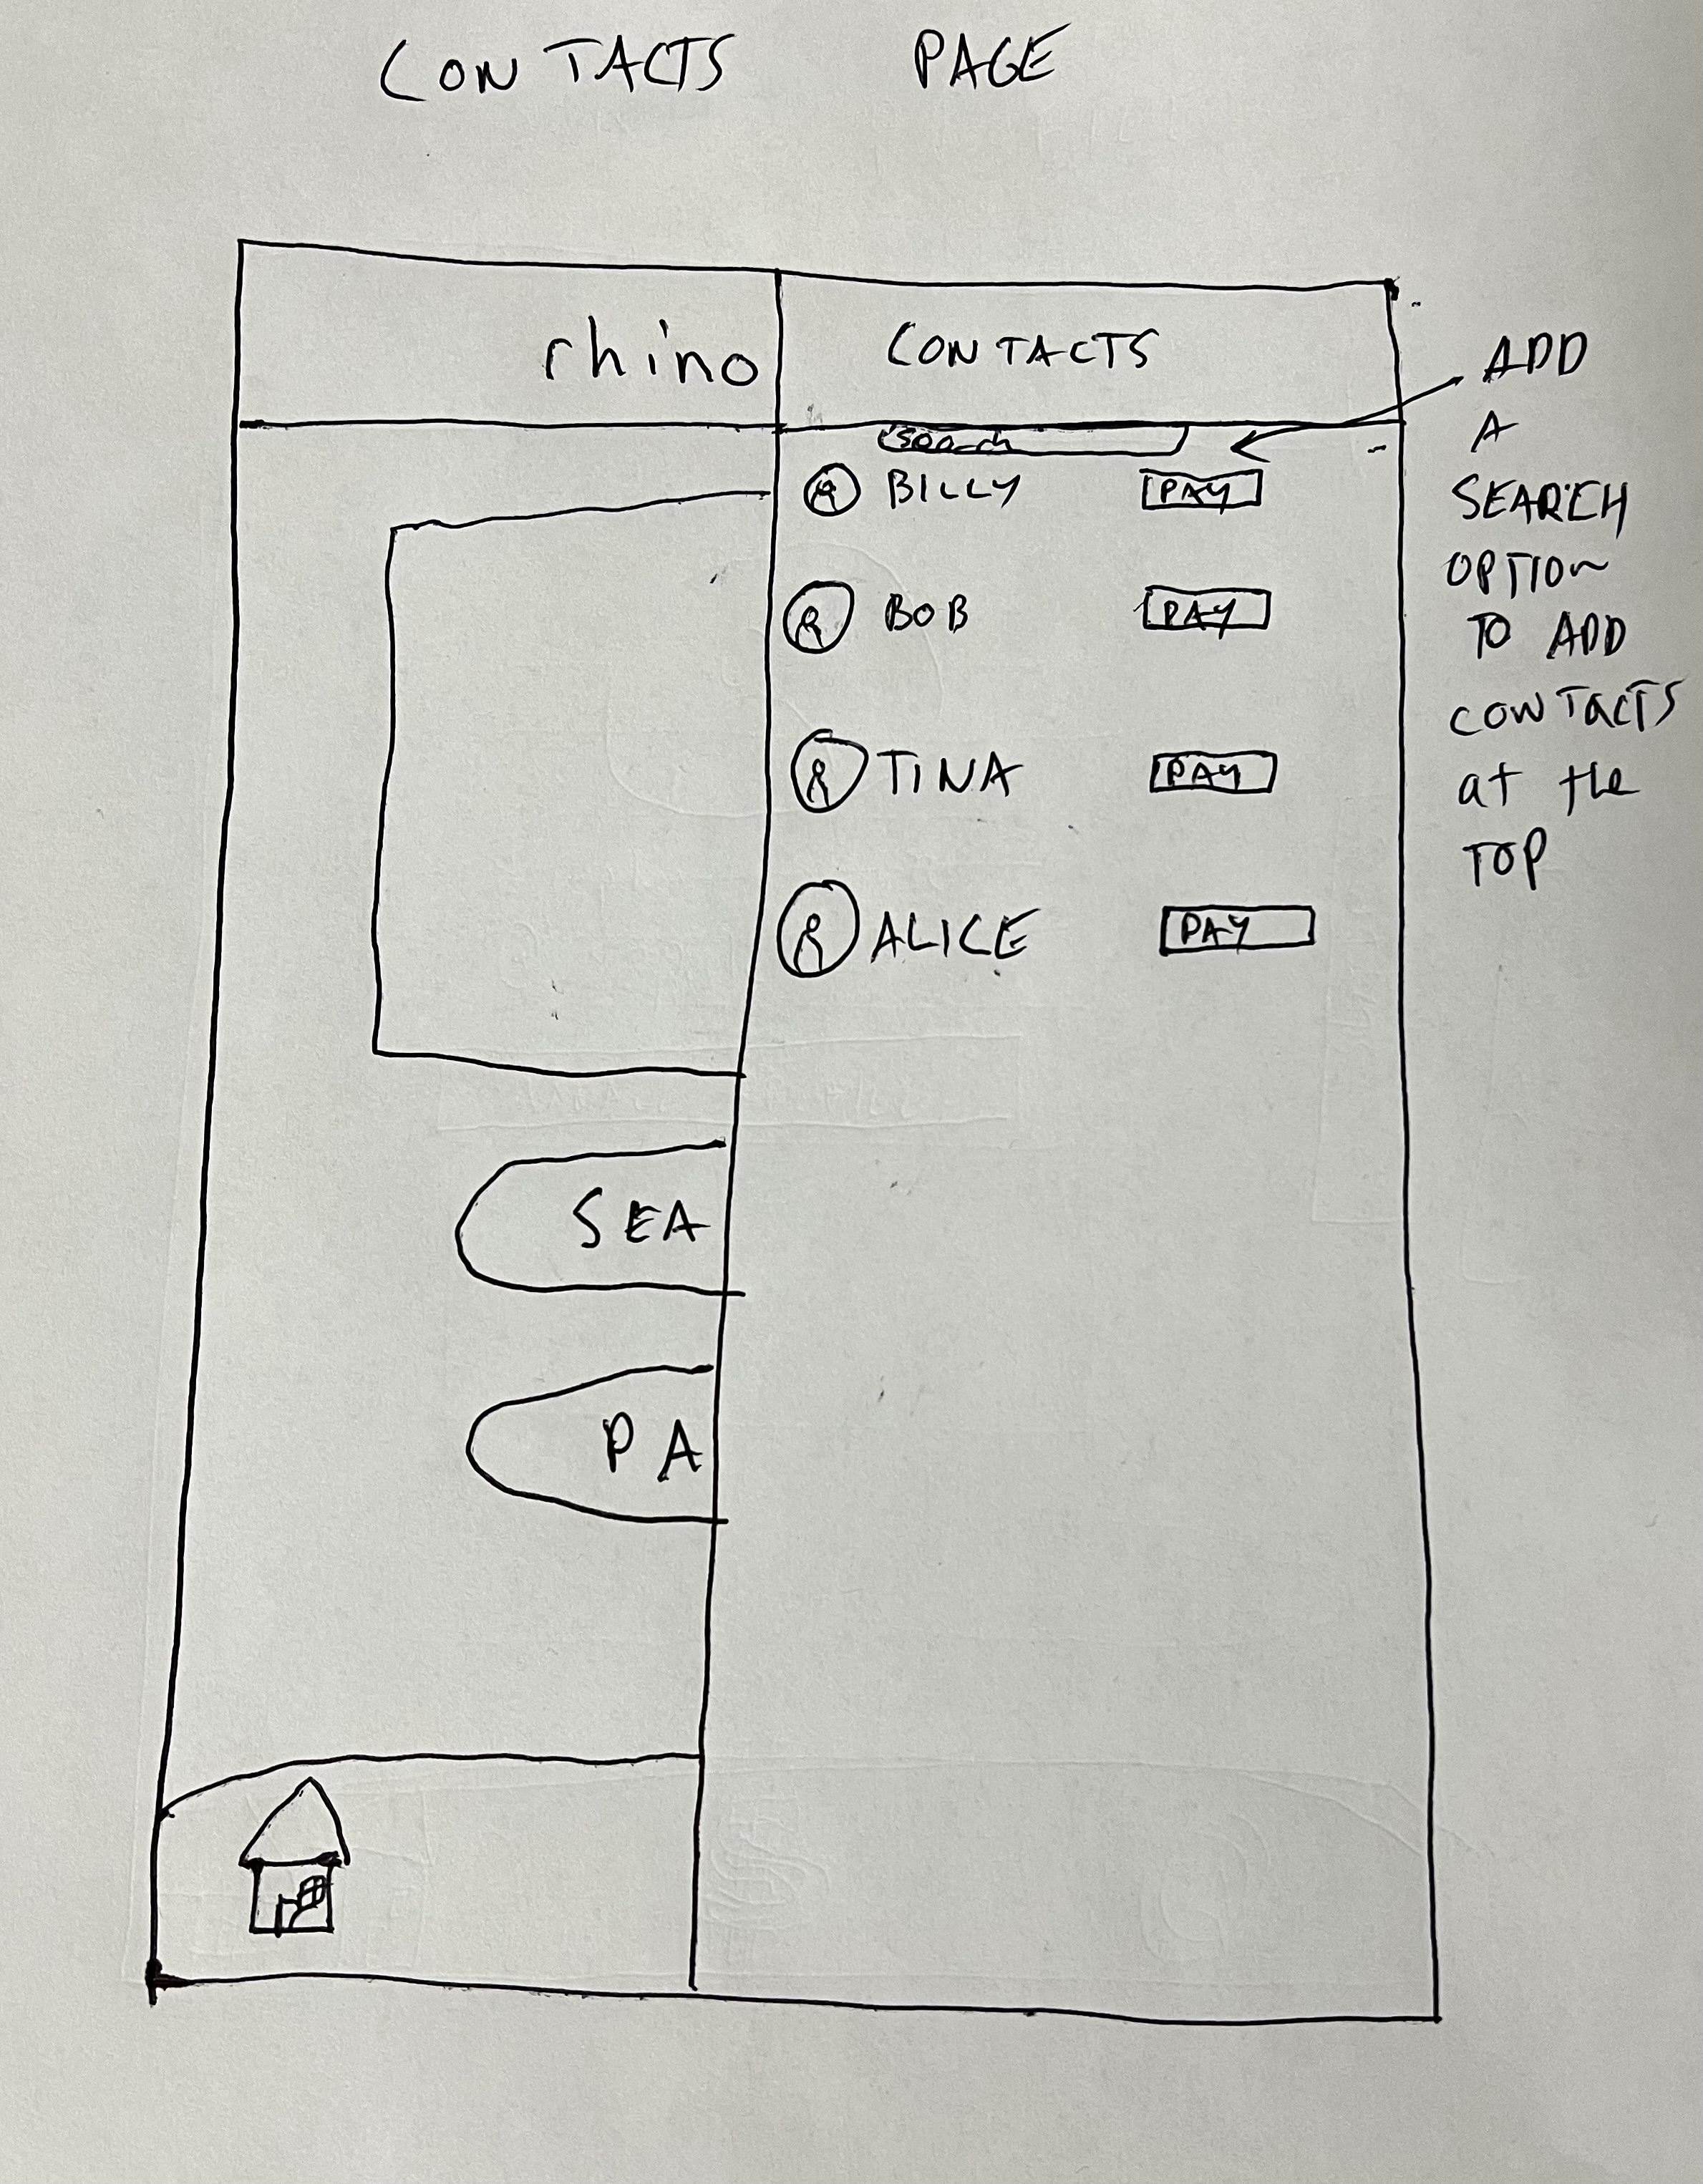 CONTACTS PAGE
rhino
CONTACTS
search
BILLY PAY
BOB PAY
TINA PAY
ALICE PAY
SEA
PA
ADD
A
SEARCH
OPTION
TO ADD
CONTACTS
at the
TOP